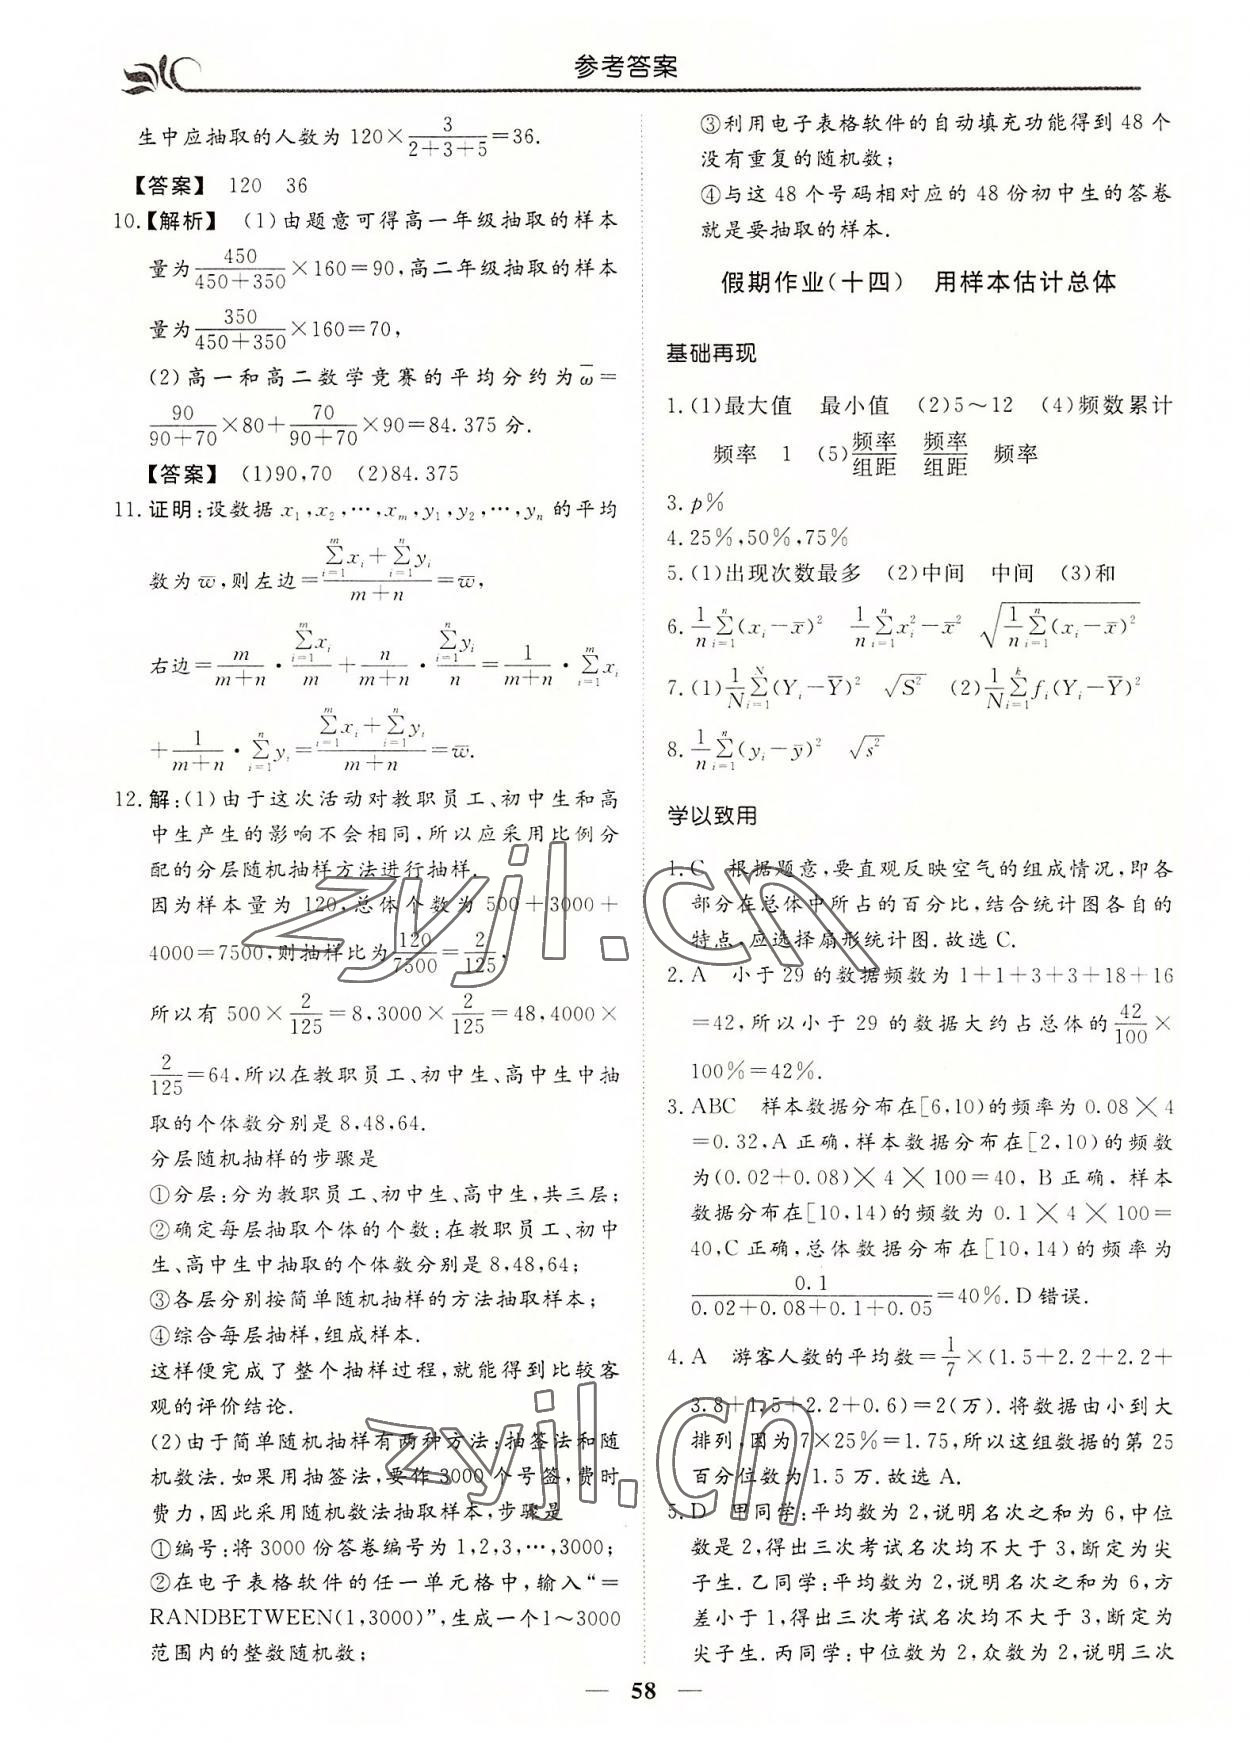 参考答案
生中应抽取的人数为 120×3/(2+3+5)=36.
【答案】 120 36
10.【解析】 (1)由题意可得高一年级抽取的样本
量为450/(450+350)×160=90,高二年级抽取的样本
量为350/(450+350)×160=70,
(2)高一和高二数学竞赛的平均分约为ω̅=
90/(90+70)×80+70/(90+70)×90=84.375分.
【答案】 (1)90,70 (2)84.375
11.证明:设数据 x₁,x₂,…,xₘ,y₁,y₂,…,yₙ 的平均
数为w̅,则左边=(∑ᵢ₌₁ᵐxᵢ+∑ᵢ₌₁ⁿyᵢ)/(m+n)=w̅,
右边=m/(m+n)·(∑ᵢ₌₁ᵐxᵢ)/m+n/(m+n)·(∑ᵢ₌₁ⁿyᵢ)/n=1/(m+n)·∑ᵢ₌₁ᵐxᵢ
+1/(m+n)·∑ᵢ₌₁ⁿyᵢ=(∑ᵢ₌₁ᵐxᵢ+∑ᵢ₌₁ⁿyᵢ)/(m+n)=w̅.
12.解:(1)由于这次活动对教职员工、初中生和高
中生产生的影响不会相同,所以应采用比例分
配的分层随机抽样方法进行抽样.
因为样本量为 120,总体个数为 500+3000+
4000=7500,则抽样比为120/7500=2/125,
所以有 500×2/125=8,3000×2/125=48,4000×
2/125=64,所以在教职员工、初中生、高中生中抽
取的个体数分别是 8,48,64.
分层随机抽样的步骤是
①分层:分为教职员工、初中生、高中生,共三层;
②确定每层抽取个体的个数:在教职员工、初中
生、高中生中抽取的个体数分别是 8,48,64;
③各层分别按简单随机抽样的方法抽取样本;
④综合每层抽样,组成样本.
这样便完成了整个抽样过程,就能得到比较客
观的评价结论.
(2)由于简单随机抽样有两种方法:抽签法和随
机数法.如果用抽签法,要作 3000 个号签,费时
费力,因此采用随机数法抽取样本,步骤是
①编号:将 3000 份答卷编号为 1,2,3,…,3000;
②在电子表格软件的任一单元格中,输入“=
RANDBETWEEN(1,3000)”,生成一个1～3000
范围内的整数随机数;
③利用电子表格软件的自动填充功能得到 48 个
没有重复的随机数;
④与这 48 个号码相对应的 48 份初中生的答卷
就是要抽取的样本.
假期作业(十四) 用样本估计总体
基础再现
1.(1)最大值 最小值 (2)5～12 (4)频数累计
频率 1 (5)频率/组距 频率/组距 频率
3.p%
4.25%,50%,75%
5.(1)出现次数最多 (2)中间 中间 (3)和
6.1/n∑ᵢ₌₁ⁿ(xᵢ−x̅)² 1/n∑ᵢ₌₁ⁿxᵢ²−x̅² √(1/n∑ᵢ₌₁ⁿ(xᵢ−x̅)²)
7.(1)1/N∑ᵢ₌₁ᴺ(Yᵢ−Y̅)² √S² (2)1/N∑ᵢ₌₁ᵏfᵢ(Yᵢ−Y̅)²
8.1/n∑ᵢ₌₁ⁿ(yᵢ−y̅)² √s²
学以致用
1.C 根据题意,要直观反映空气的组成情况,即各
部分在总体中所占的百分比,结合统计图各自的
特点,应选择扇形统计图.故选 C.
2.A 小于 29 的数据频数为 1+1+3+3+18+16
=42,所以小于 29 的数据大约占总体的42/100×
100%=42%.
3.ABC 样本数据分布在[6,10)的频率为 0.08×4
=0.32,A 正确,样本数据分布在[2,10)的频数
为(0.02+0.08)×4×100=40,B 正确,样本
数据分布在[10,14)的频数为 0.1×4×100=
40,C 正确,总体数据分布在[10,14)的频率为
0.1/(0.02+0.08+0.1+0.05)=40%.D 错误.
4.A 游客人数的平均数=1/7×(1.5+2.2+2.2+
3.8+1.5+2.2+0.6)=2(万).将数据由小到大
排列,因为 7×25%=1.75,所以这组数据的第 25
百分位数为 1.5 万.故选 A.
5.D 甲同学:平均数为 2,说明名次之和为 6,中位
数是 2,得出三次考试名次均不大于 3,断定为尖
子生.乙同学:平均数为 2,说明名次之和为 6,方
差小于 1,得出三次考试名次均不大于 3,断定为
尖子生.丙同学:中位数为 2,众数为 2,说明三次
— 58 —
zyjl.cn
zyjl.cn